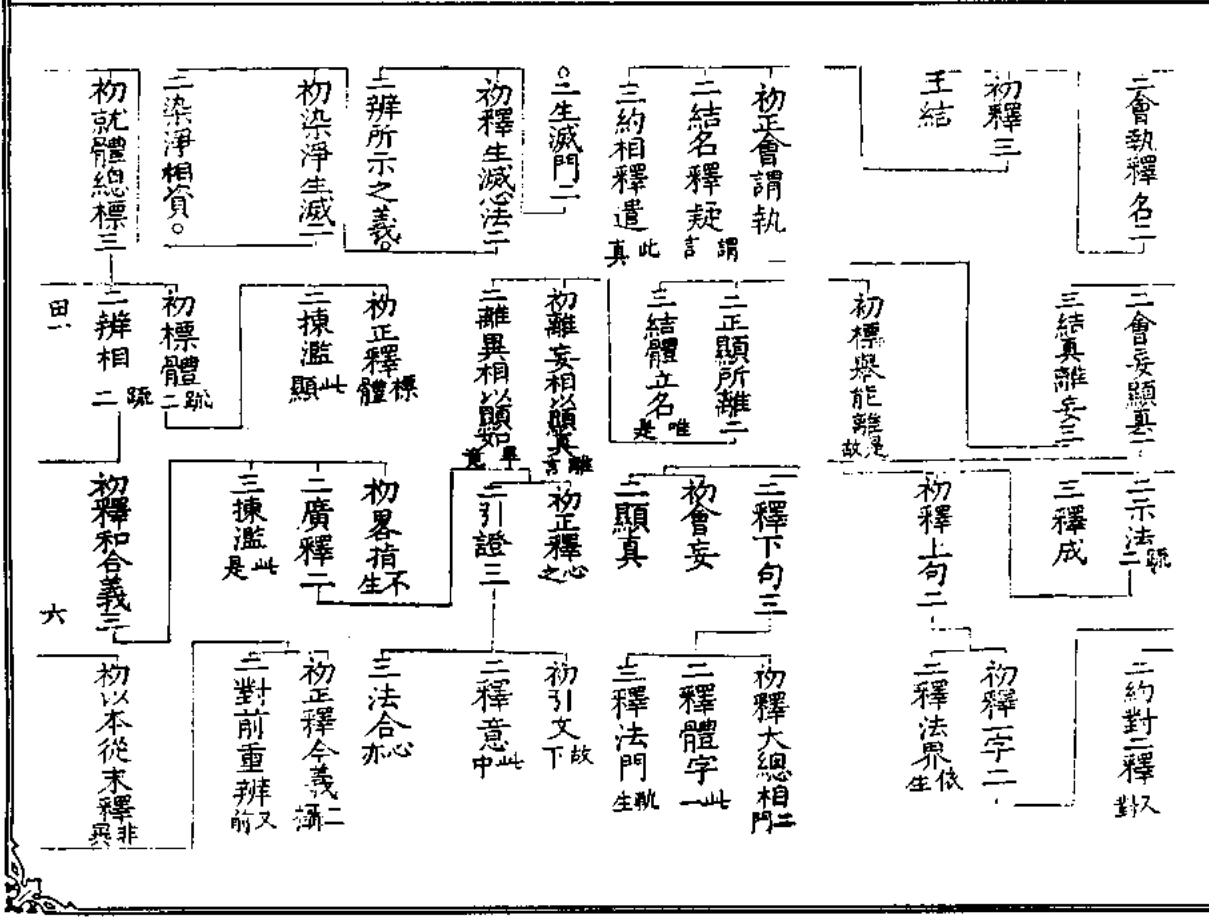 二會執釋名二
初釋三
王結
初正會謂執
二結名釋疑 謂言
三約相釋遣 此真
○二生滅門二
初釋生滅心法二
二辨所示之義○
初染淨生滅二
二染淨相資○
初就體總標三
二會妄顯真二
三結真離妄三
初標舉能離 是故
二正顯所離二
三結體立名 唯是
初離妄相以顯真 離言
二離異相以顯如 畢竟
初正釋 標體
二揀濫 此顯
初標體 疏二
二辨相 疏二
二示法 疏二
三釋成
初釋上句二
二釋下句三
初會妄
二顯真
初正釋 心之
二引證三
初畧指 不生
二廣釋二
三揀濫 此是
初釋和合義三
六
二約對二釋 又對
初釋一字二
二釋法界 依生
初釋大總相門二
二釋體字 此一
三釋法門 軌生
初引文 故下
二釋意 此中
三法合 心亦
初正釋今義 二攝
二對前重辨 又前
初以本從末釋 非